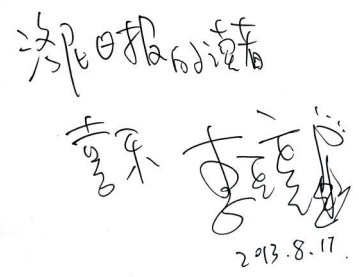 洛阳日报的读者
喜乐
2013.8.17.